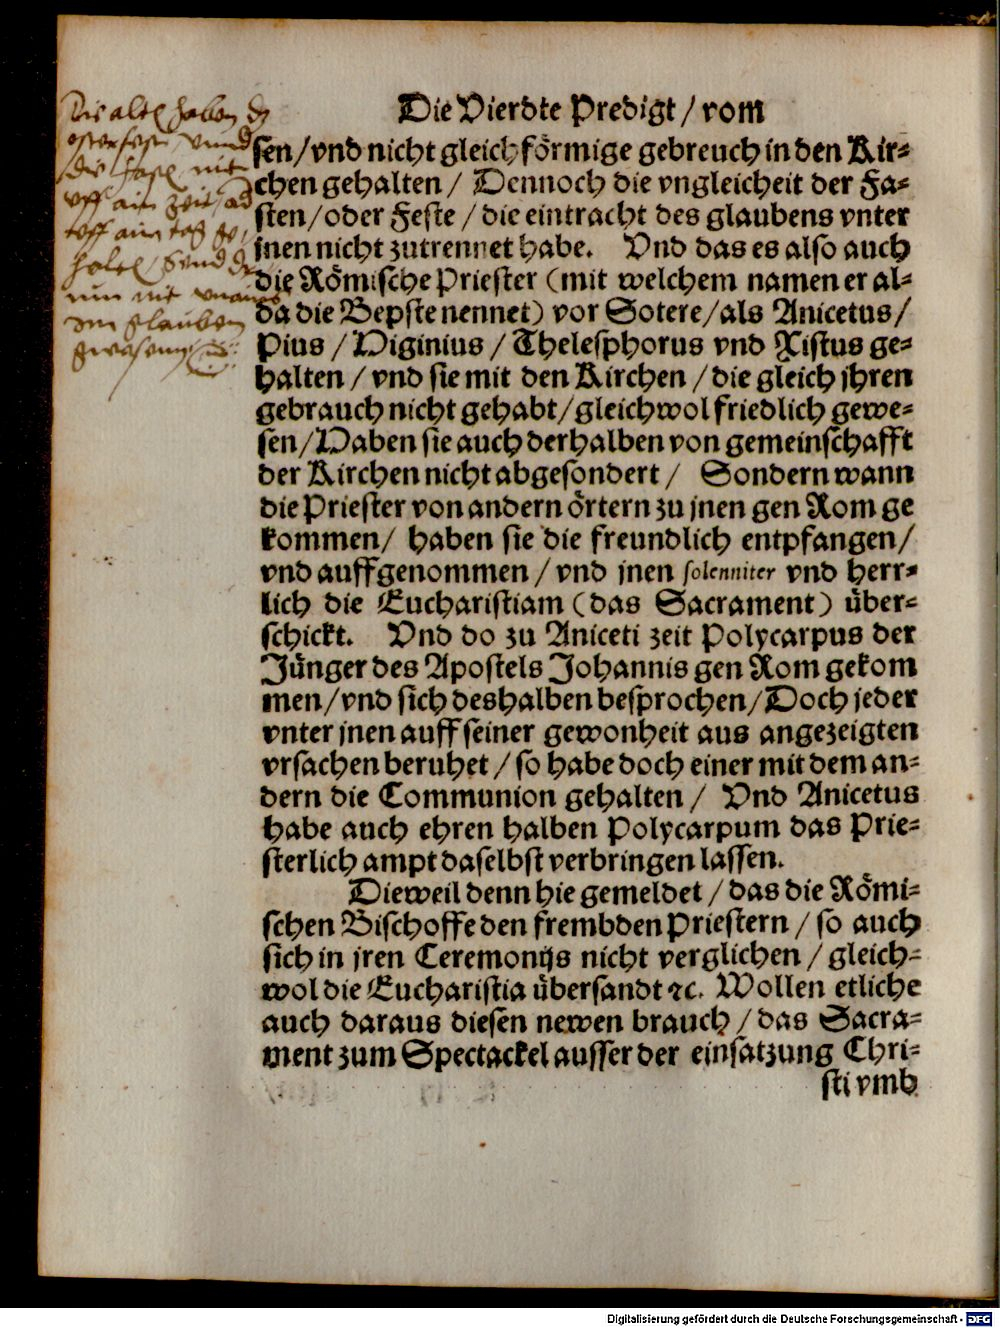 Die Vierdte Predigt / vom
Die alten haben dz
osterfest vnnd
die fasten nit
vff ain Zeit /
vff ain tag ge-
halten / Send
nun nit
Im glauben
gwesen
sen / vnd nicht gleichförmige gebreuch in den Kir-
chen gehalten / Dennoch die vngleicheit der Fa-
sten / oder Feste / die eintracht des glaubens vnter
jnen nicht zutrennet habe. Vnd das es also auch
die Römische Priester (mit welchem namen er al-
da die Bepste nennet) vor Sotere / als Anicetus /
Pius / Higinius / Thelesphorus vnd Xistus ge-
halten / vnd sie mit den Kirchen / die gleich jhren
gebrauch nicht gehabt / gleichwol friedlich gewe-
sen / Haben sie auch derhalben von gemeinschafft
der Kirchen nicht abgesondert / Sondern wann
die Priester von andern örtern zu jnen gen Rom ge
kommen / haben sie die freundlich entpfangen /
vnd auffgenommen / vnd jnen solenniter vnd herr-
lich die Eucharistiam (das Sacrament) über-
schickt. Vnd do zu Aniceti zeit Polycarpus der
Jünger des Apostels Johannis gen Rom gekom
men / vnd sich deshalben besprochen / Doch jeder
vnter jnen auff seiner gewonheit aus angezeigten
vrsachen beruhet / so habe doch einer mit dem an-
dern die Communion gehalten / Vnd Anicetus
habe auch ehren halben Polycarpum das Prie-
sterlich ampt daselbst verbringen lassen.
Dieweil denn hie gemeldet / das die Römi-
schen Bischoffe den frembden Priestern / so auch
sich in jren Ceremonijs nicht verglichen / gleich-
wol die Eucharistia übersandt ꝛc. Wollen etliche
auch daraus diesen newen brauch / das Sacra-
ment zum Spectackel ausser der einsatzung Chri-
sti vmb
Digitalisierung gefördert durch die Deutsche Forschungsgemeinschaft - DFG